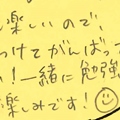 楽しいので、
つけてがんばっ
！一緒に勉強
楽しみです！